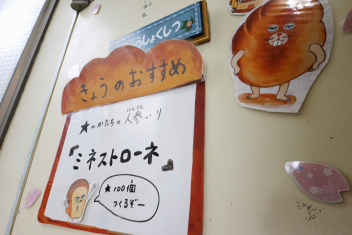 しょくしつ
きょうのおすすめ
★のかたちの人参いり
にんじん
「ミネストローネ」
★100個
つくるぞー